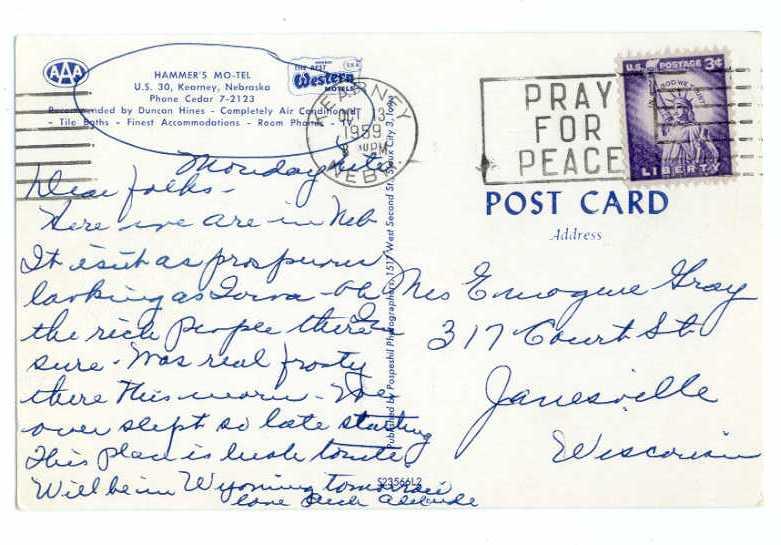 AAA
HAMMER'S MO-TEL
U.S. 30, Kearney, Nebraska
Phone Cedar 7-2123
Recommended by Duncan Hines - Completely Air Conditioned
- Tile Baths - Finest Accommodations - Room Phones -
THE BEST
Western
MOTELS
KEARNEY
OCT 13
1959
PM
NEBR.
PRAY
FOR
PEACE
U.S. POSTAGE 3¢
IN GOD WE TRUST
LIBERTY
POST CARD
Address
Monday nite
Dear folks -
Here we are in Neb
It isn't as prosperous
looking as Iowa - oh
the rich people there Im
sure - Was real frosty
there this morn - We
over slept so late starting
This place is lush tonite.
Will be in Wyoming tomorrow
love
Mrs Emogene Gray
317 Court St
Janesville
Wisconsin
Published by Pospeshil Photographers, 1517 West Second St., Sioux City 3, Iowa
S23566L2